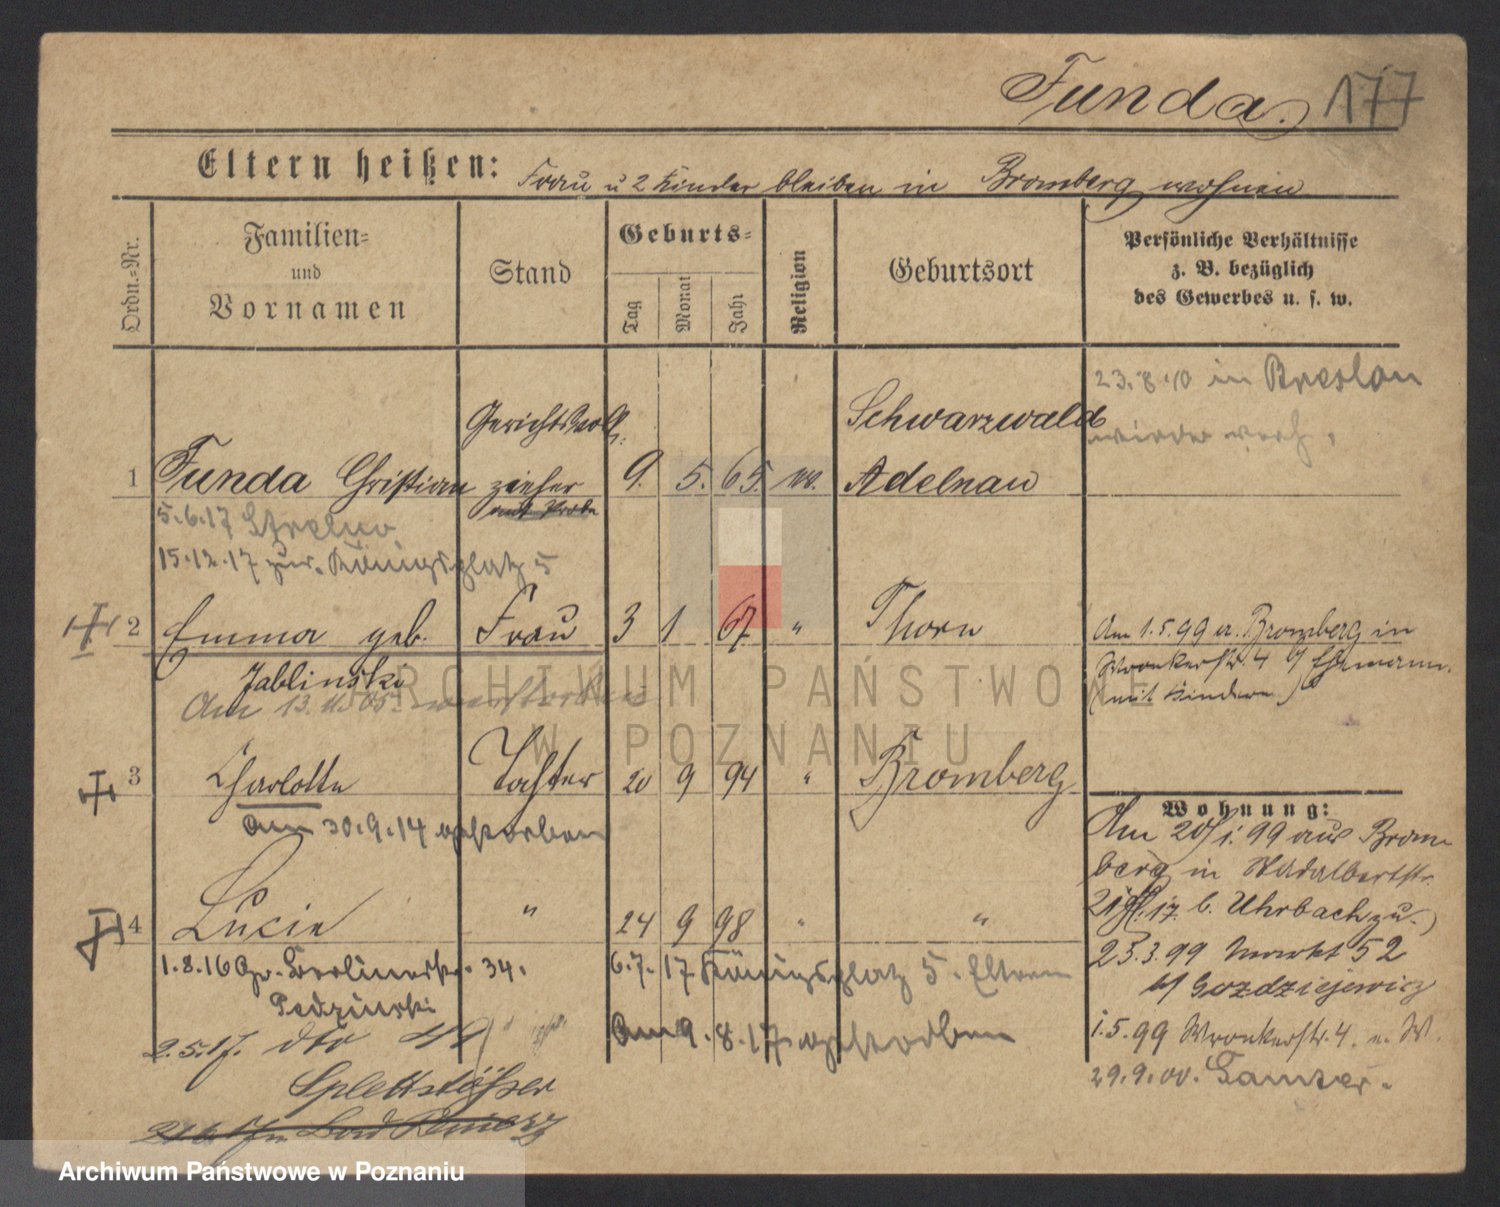 Funda. 177
Eltern heißen: Frau u 2 Kinder bleiben in Bromberg wohnen
Ordn.-Nr.
Familien- und Vornamen
Stand
Geburts-
Tag
Monat
Jahr
Religion
Geburtsort
Persönliche Verhältnisse
z. B. bezüglich
des Gewerbes u. s. w.
23.8.10 in Breslau
wieder verh.
Gerichtsvoll-
Schwarzwald
1 Funda Christian zieher 9. 5. 65. Adelnau
auf Probe
5.6.17 Strelno
15.12.17 zur. Königsplatz 5
2 Emma geb. Frau 3 1 67 " Thorn
Jablinski
Am 13. 05. verstorben
Am 1.5.99 a. Bromberg in
Wronkerstr. 4 Ehemann
(mit Kindern)
3 Charlotte Tochter 20 9 94 " Bromberg
am 30.9.14 gestorben
Wohnung:
Am 20/1. 99 aus Brom
berg in Adalbertstr.
b. Uhrbach zu.)
23.3.99 Markt 52
b/ Gozdziejewicz
1.5.99 Wronkerstr. 4. n. W.
29.9.00. Samter.
4 Lucie " 24 9 98 " "
1.8.16 Berlinerstr. 34.
Pedzinski
6.7.17 Königsplatz 5. Eltern
Am 9.8.17 gestorben
2.5.17. dto
Splettstößer
ARCHIWUM PAŃSTWOWE
W POZNANIU
Archiwum Państwowe w Poznaniu